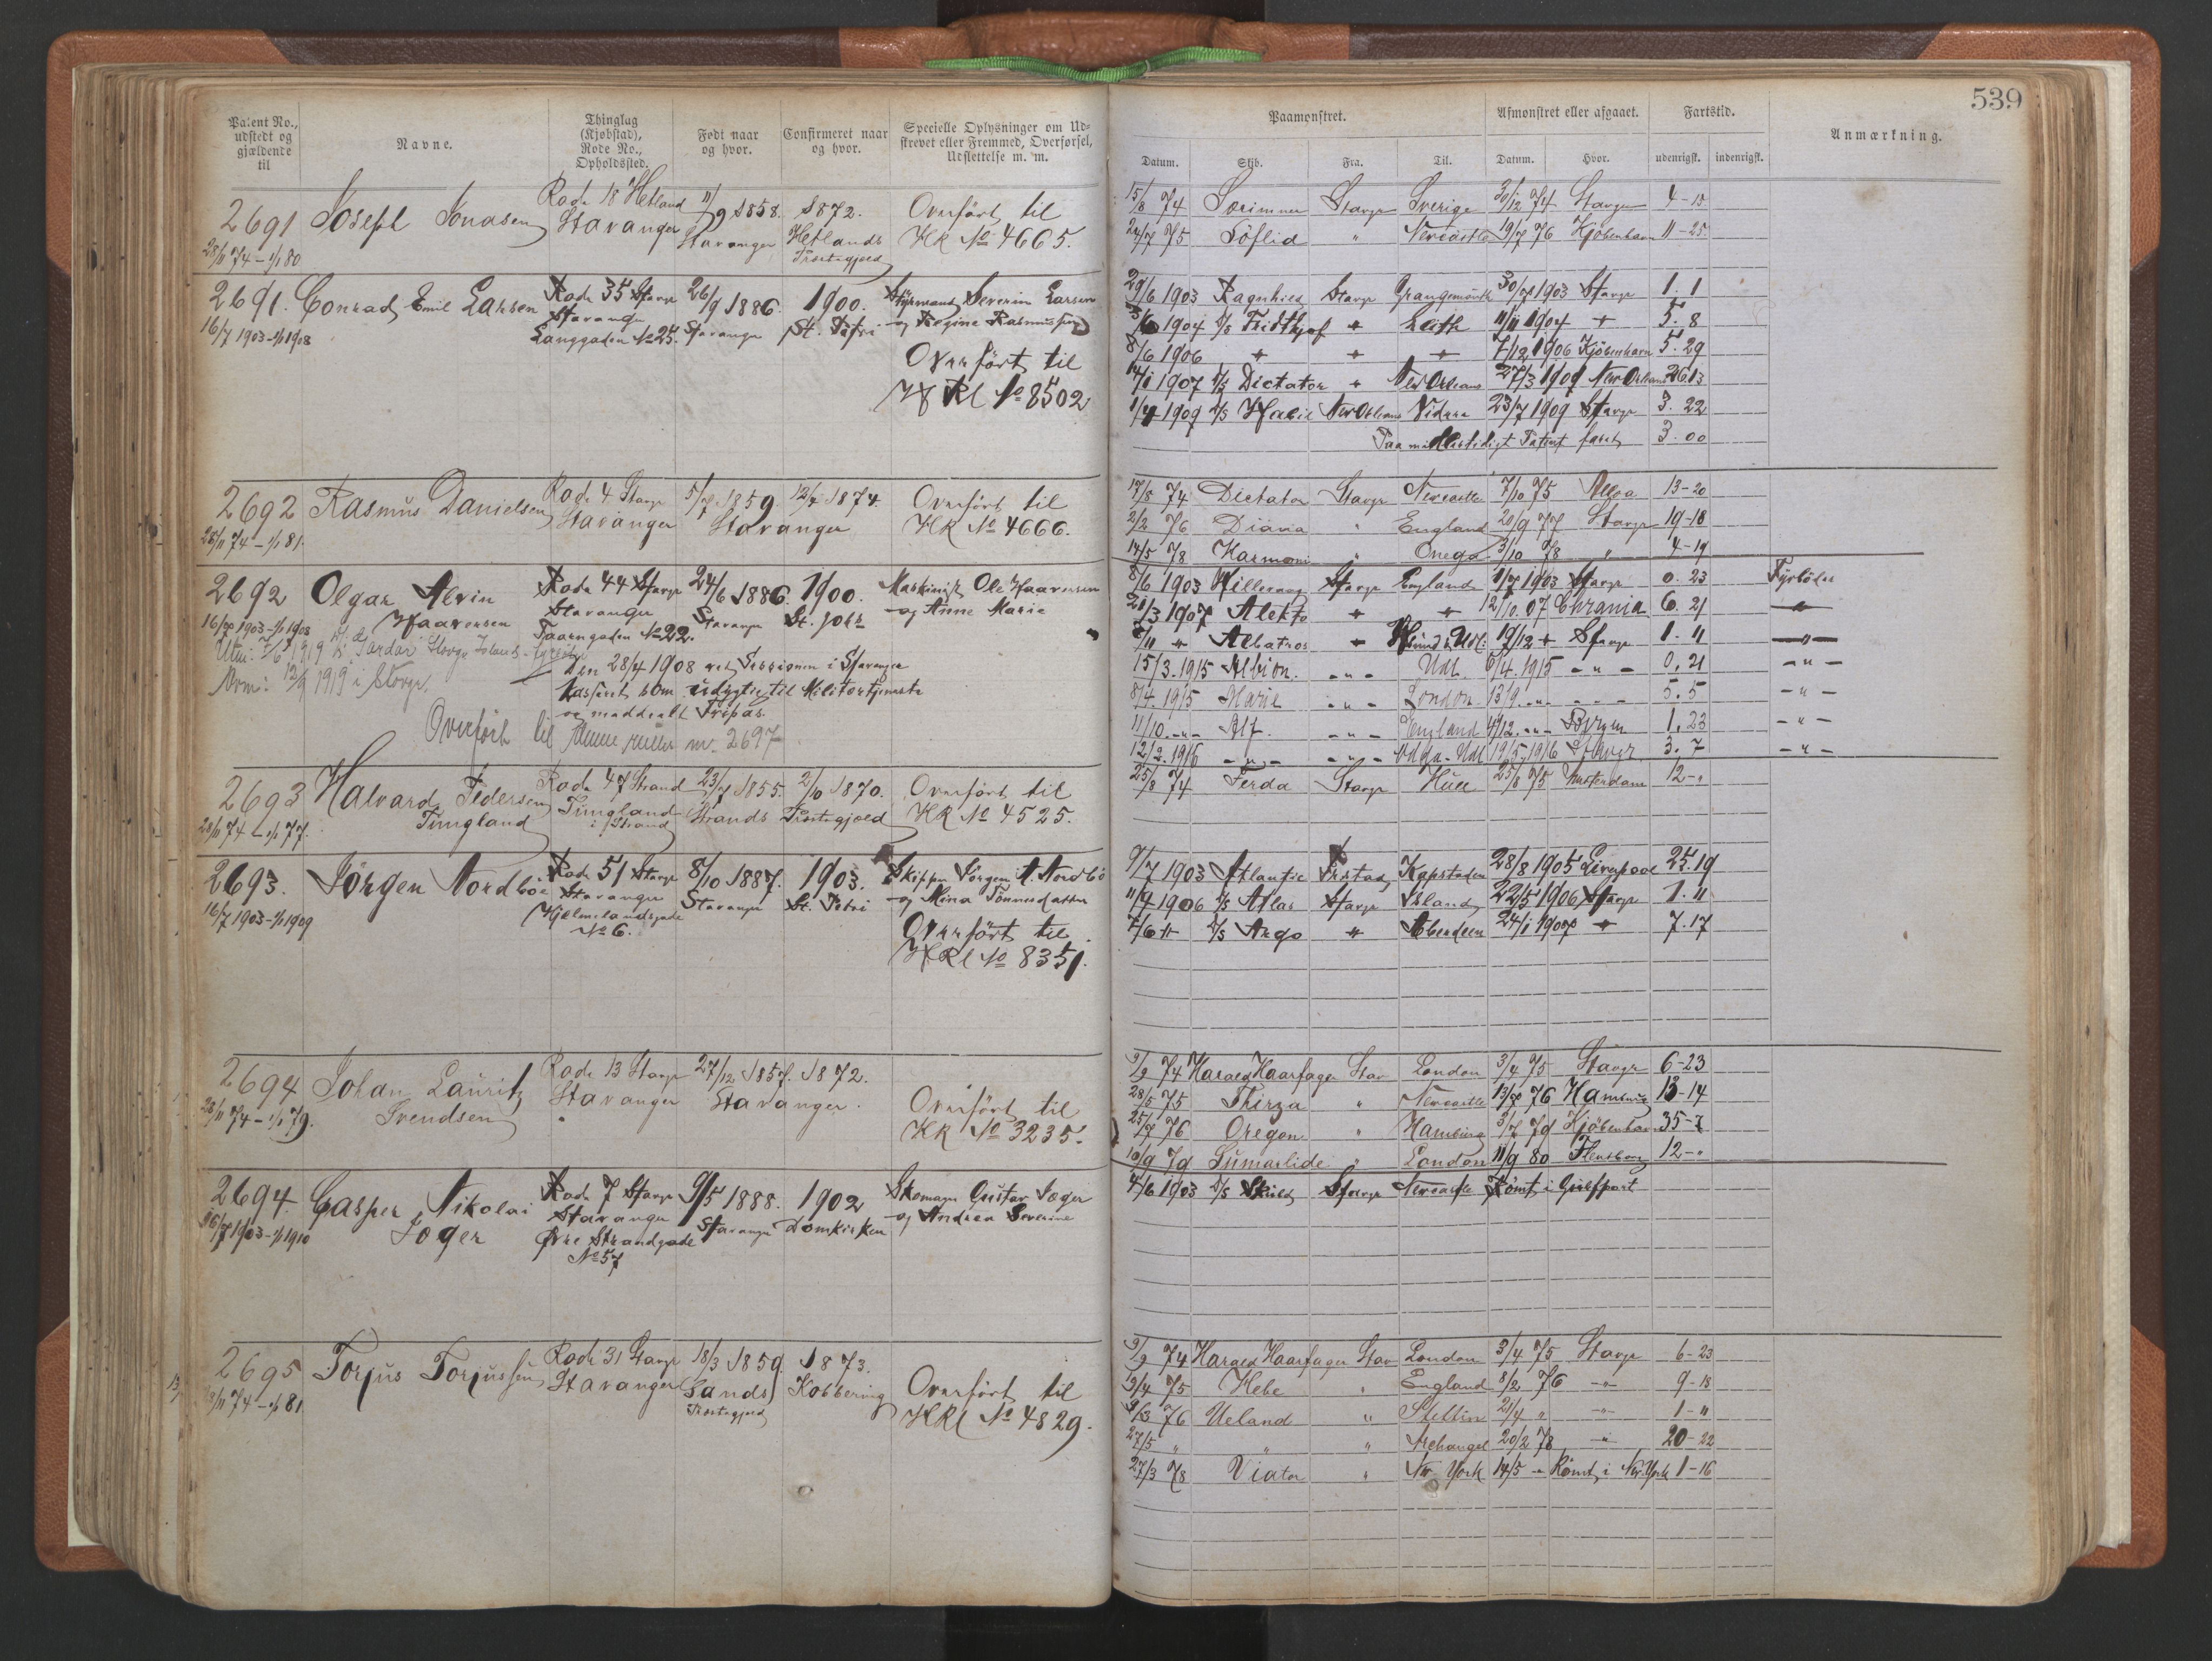 539
Patent No., udstedt og gjældende til
Navne.
Thinglag (Kjøbstad), Rode No., Opholdssted.
Født naar og hvor.
Confirmeret naar og hvor.
Specielle Oplysninger om Udstrevet eller Fremmed, Overførsel, Udslettelse m. m.
Paamønstret.
Afmønstret eller afgaaet.
Fartstid.
Anmærkning.
Datum. Skib. Fra. Til. Datum. Hvor. udenrigsk. indenrigsk.
2691 Joseph Jonasen Rode 18 Hetland 11/9 1858. 1872. Overført til
Stavanger Stavanger Hetlands HK No 4665.
28/11 74 - 1/1 80 Præstegjæld
15/8 74 Stavgr Sverige 30/12 74 Stavgr 4-15
24/7 75 " Newcastle 19/7 76 Kjøbenhavn 11-25
2691. Conrad Emil Larsen Rode 35 Stavgr 26/9 1886. 1900. Styrmand Severin Larsen
16/7 1903-1/1 1908 Stavanger Stavanger St. Petri og Regine Rasmussen
Langgaden No 25.
Overført til
HKl No 8502
29/6 1903 Ragnhild Stavgr Grangemouth 30/7 1903 Stavgr 1. 1
1904 D/S Fridthjof " Leith 11/11 1904 " 5. 8
8/6 1906 " " " 7/12 1906 Kjøbenhavn 5. 29
14/1 1907 D/S Dictator " New Orleans 27/3 1909 New Orleans 26. 13
1/4 1909 D/S New Orleans 23/7 1909 Stavgr 3. 22
Paa midlertidigt Patent faret 3. 00
2692 Rasmus Danielsen Rode 4 Stavgr 5/7 1859 12/4 1874. Overført til
28/11 74 - 1/1 81. Stavanger Stavanger HK No 4666.
17/8 74 Dictator Stavgr Newcastle 7/10 75 Alloa 13-20
2/2 76 Diana " England 20/9 77 Stavgr 19-18
14/5 78 Harmoni " Onega 3/10 78 " 4-19
2692 Olgar Alvin Rode 44 Stavgr 24/6 1886. 1900. Maskinist Ole Haavorsen
16/7 1903-1/1 1908 Haavorsen Stavanger Stavanger St. Johs og Anne Marie
Taarngaden No 22.
1919 Stavgr Islands
12/9 1919 i Stavgr.
Den 28/4 1908 ved Sessionen i Stavanger
kasseret som udygtig til Militærtjeneste
og meddelt Fripas.
Overført til Anne nr. 2697
8/6 1903 Hillevaag Stavgr England 1/7 1903 Stavgr 0. 23 Fyrbøder
21/3 1907 Alekto " " 12/10. 07 Chrania 6. 21 "
8/11 " Albatros " 19/12 " Stavgr 1. 11 -"-
15/3. 1915 Albion. -"- Udl. 6/4. 1915 -"- 0. 21 -"-
8/4. 1915 Marie -"- London 13/9. -"- 5. 5 -"-
11/10. -"- Alf. -"- England 4/12. -"- Bergen 1. 23 -"-
12/2. 1916 -"- -"- Udl 19/5 1916 Stavgr. 3. 7 -"-
2693 Halvard Pedersen Rode 47 Strand 23/7 1855. 2/10 1870. Overført til
28/11 74 - 1/1 77. Tungland Tungland i Strand Strands Præstegjæld HK No 4525.
25/8 74 Ferda Stavgr Hull 25/8 75 Amsterdam 12-"
2693. Jörgen Nordböe Rode 51 Stavgr 8/10 1887. 1903. Skipper Jörgen A. Nordbö
16/7 1903-1/1 1909 Stavanger Stavanger St. Petri og Mina Tönnesdatter
Hjelmelandsgade No 6.
Overført til
HKl No 8351.
9/7 1903 Atlantic Kapstaden 28/8 1905 Liverpool 25. 19
11/4 1906 D/S Atlas Stavgr Island 22/5 1906 Stavgr 1. 11
7/6 " D/S Argo " Aberdeen 24/1 1907 " 7. 17
2694 Johan Lauritz Rode 13 Stavgr 27/12 1857. 1872.
28/11 74 - 1/1 79. Svendsen Stavanger Stavanger. Overført til
HK No 3235.
9/9 74 Harald Haarfager Stav London 3/4 75 Stavgr 6-23
28/5 75 Thirza " Newcastle 13/7 76 Hamburg 13-14
25/7 76 Oregon " Hamburg 3/7 79 Kjøbenhavn 35-7
10/9 79 Sumarlide " London 11/9 80 Flensborg 12-"
2694. Casper Nikolai Rode 7 Stavgr 9/5 1888. 1902 Skomager Gustav Joger
16/7 1903-1/1 1910 Joger Stavanger Stavanger Domkirken og Andrea Severine
Øvre Strandgade
No 57
4/6 1903 D/S Skuld Stavgr Newcastle Römt i Gulfport
2695 Torjus Torjussen Rode 31 Stavgr 18/3 1859. 1873.
28/11 74 - 1/1 81 Stavanger Sands Præstegjeld Overført til
HKl No 4829.
9/9 74 Harald Haarfager Stav London 3/4 75 Stavgr 6-23
9/4 75 Hebe " England 8/2 76 -"- 9-18
9/3 76 Ueland " Stettin 21/4 " -"- 1-11
27/5 " " " Archangel 20/2 78 -"- 20-22
27/3 78 Viator " New York 14/5 " Römt i New York 1-16